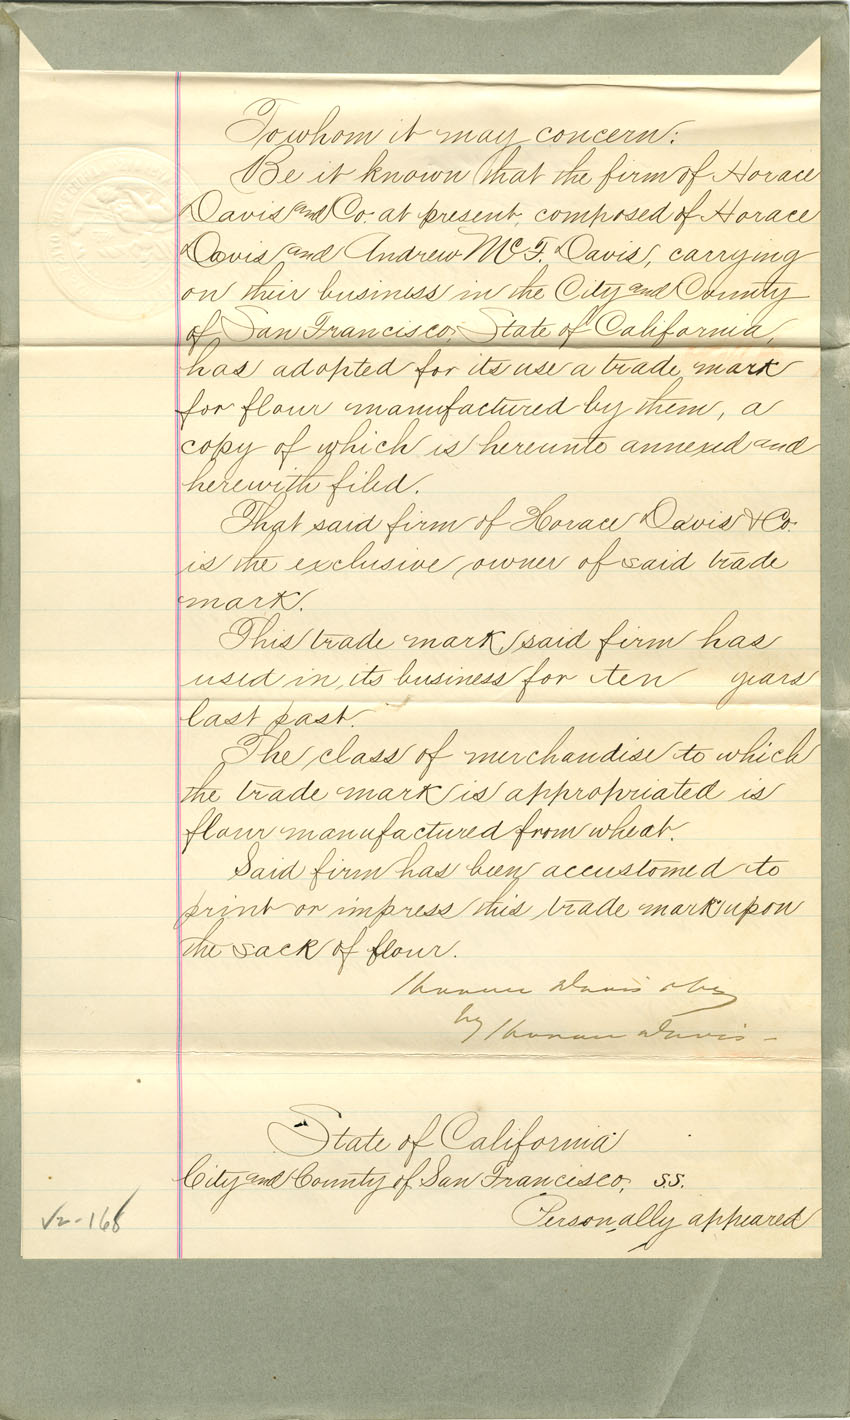 To whom it may concern:
Be it known that the firm of Horace
Davis and Co. at present, composed of Horace
Davis and Andrew McF. Davis, carrying
on their business in the City and County
of San Francisco, State of California,
has adopted for its use a trade mark
for flour manufactured by them, a
copy of which is hereunto annexed and
herewith filed.
That said firm of Horace Davis & Co.
is the exclusive owner of said trade
mark.
This trade mark, said firm has
used in its business for ten years
last past.
The class of merchandise to which
the trade mark is appropriated is
flour manufactured from wheat.
Said firm has been accustomed to
print or impress this trade mark upon
the sack of flour.
Horace Davis & Co
by Horace Davis -
State of California
City and County of San Francisco, ss.
Personally appeared